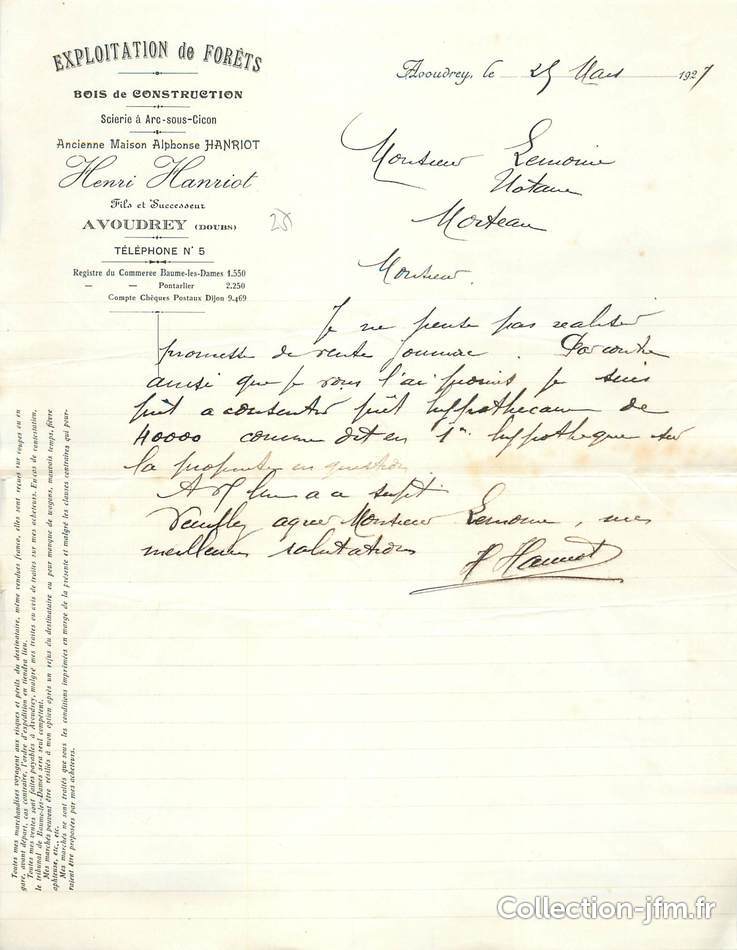 EXPLOITATION de FORÊTS
BOIS de CONSTRUCTION
Scierie à Arc-sous-Cicon
Ancienne Maison Alphonse HANRIOT
Henri Hanriot
Fils et Successeur
AVOUDREY (DOUBS)
TÉLÉPHONE N° 5
Registre du Commerce Baume-les-Dames 1.550
— — Pontarlier 2.250
Compte Chèques Postaux Dijon 9.469
25
Avoudrey, le 25 Mars 1927
Monsieur Lemoine
Notaire
Morteau
Monsieur
Je ne pense pas realiser
promesse de vente . Par contre
ainsi que je vous l'ai promis je suis
prêt a consentir prêt hypothecaire de
40000 comme dit en 1re hypotheque sur
la propriete en question
Veuillez agreer Monsieur Lemoine, mes
meilleures salutations
H Hanriot
Toutes mes marchandises voyagent aux risques et périls du destinataire, même vendues franco, elles sont reçues sur coupes ou en
gare, avant départ, cas contraire, l'ordre d'expédition en tiendra lieu.
Toutes mes ventes sont faites payables à Avoudrey, malgré mes traites ou avis de traites sur mes acheteurs. En cas de contestation,
le tribunal de Baume-les-Dames sera seul compétent.
Mes marchés peuvent être résiliés à mon option après un refus du destinataire ou pour manque de wagons, mauvais temps, fièvre
aphteuse, etc., etc.
Mes marchés ne sont traités que sous les conditions imprimées en marge de la présente et malgré les clauses contraires qui pour-
raient être proposées par mes acheteurs.
© Collection-jfm.fr